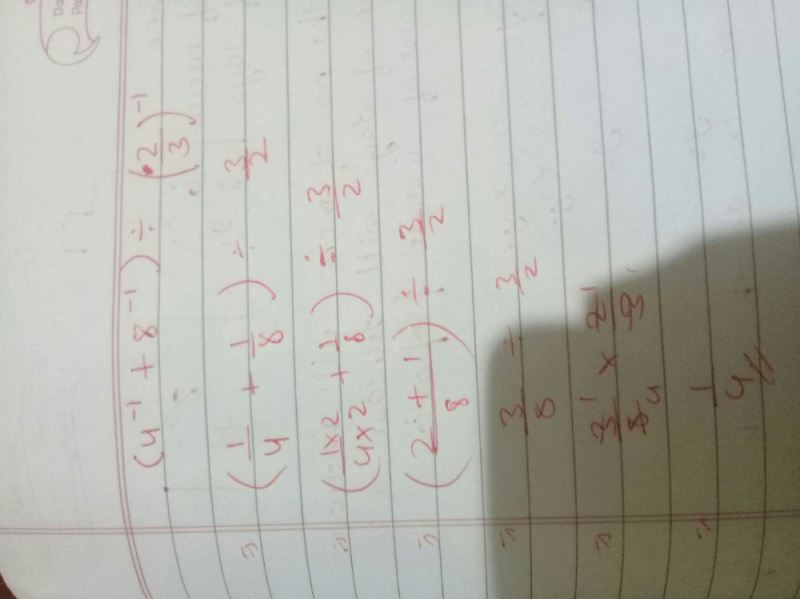 (4⁻¹ + 8⁻¹) ÷ (2/3)⁻¹
= (1/4 + 1/8) ÷ 3/2
= (1×2/4×2 + 1/8) ÷ 3/2
= (2+1/8) ÷ 3/2
= 3/8 ÷ 3/2
= 3¹/8₄ × 2¹/3₁
= 1/4